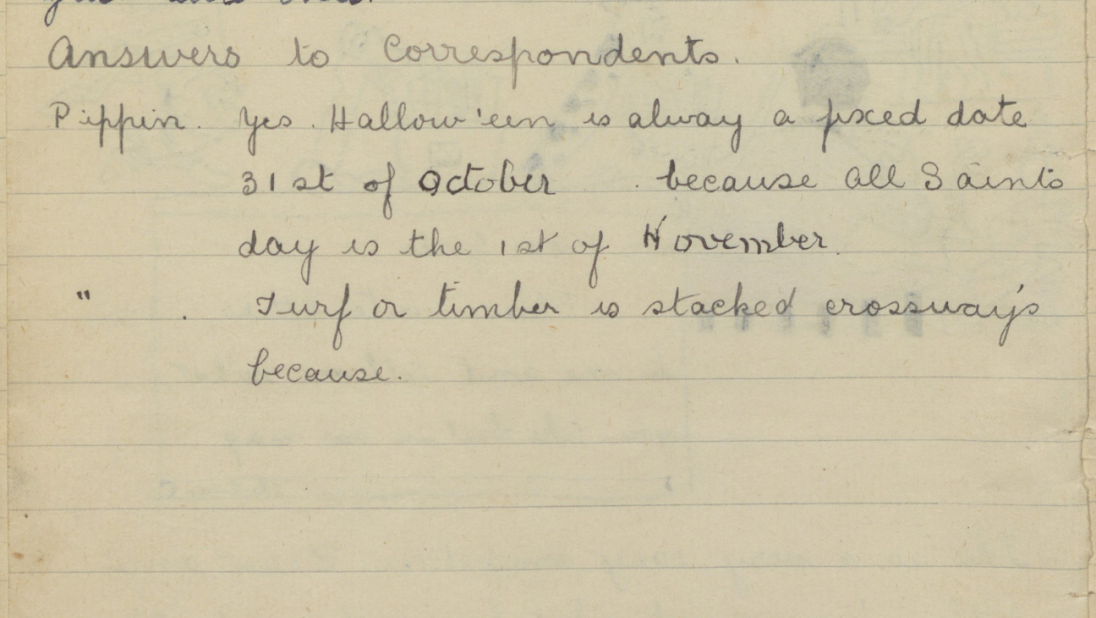 Answers to Correspondents.
Pippin. Yes. Hallow'een is alway a fixed date
31st of October . because all Saints
day is the 1st of November.
" . Turf or timber is stacked crossways
because.